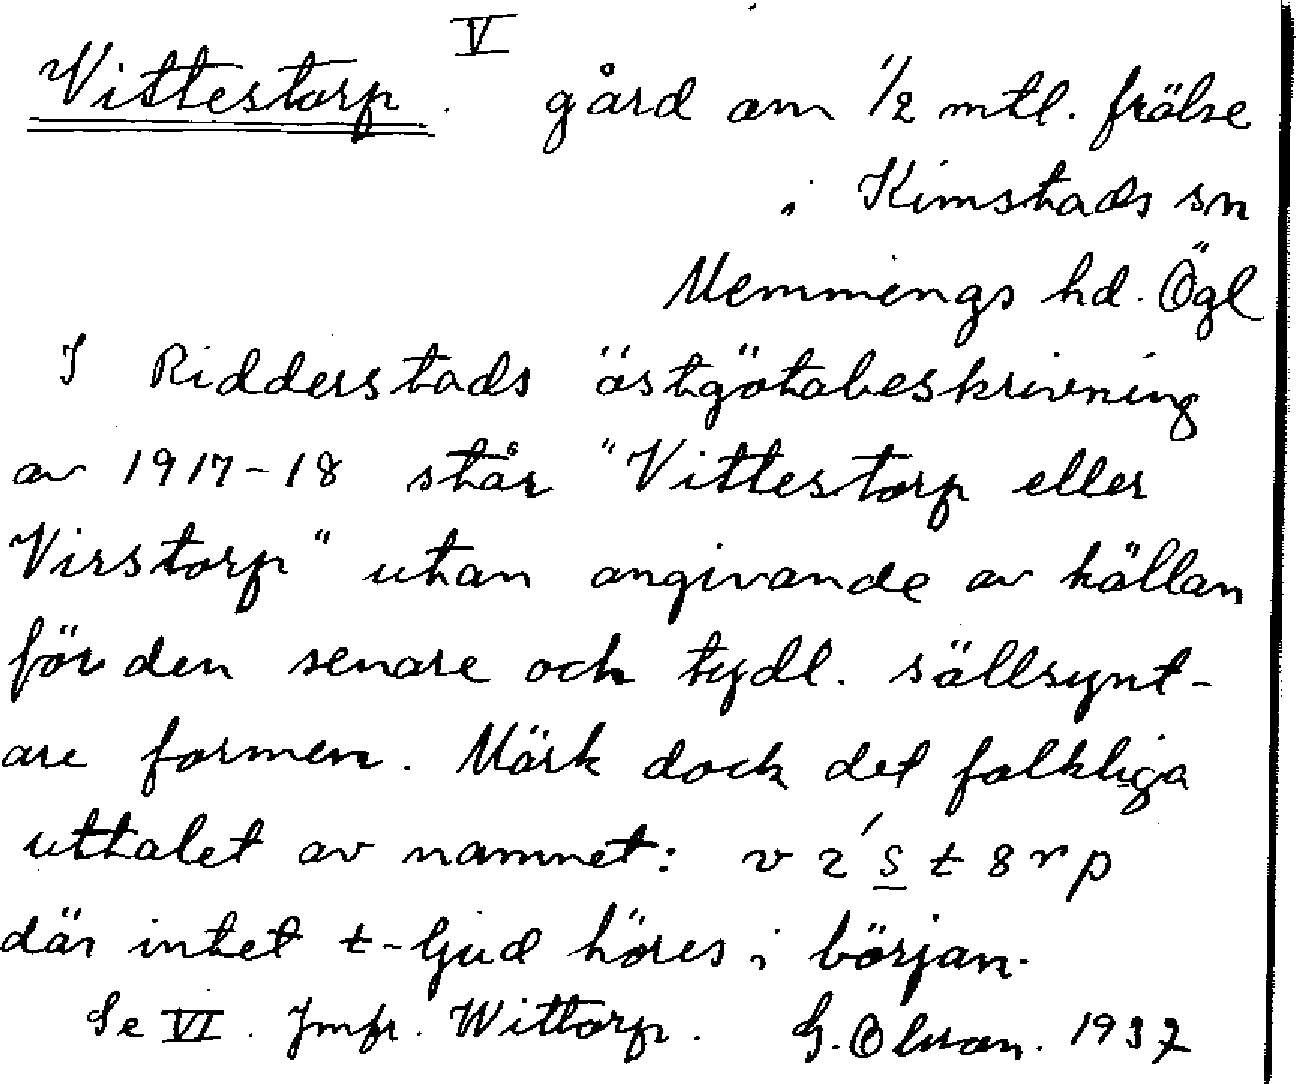 Vittestorp. V gård om 1/2 mtl. frälse
i Kimstads sn
Memmings hd. Ögl
I Ridderstads östgötabeskrivning
av 1917-18 står "Vittestorp eller
Virstorp" utan angivande av källan
för den senare och tydl. sällsynt-
are formen. Märk dock det folkliga
uttalet av namnet: v ɩ ́ s t 8 r p
där intet t-ljud höres i början.
Se VI. Jmfr. Wittorp. G. Olsson. 1937